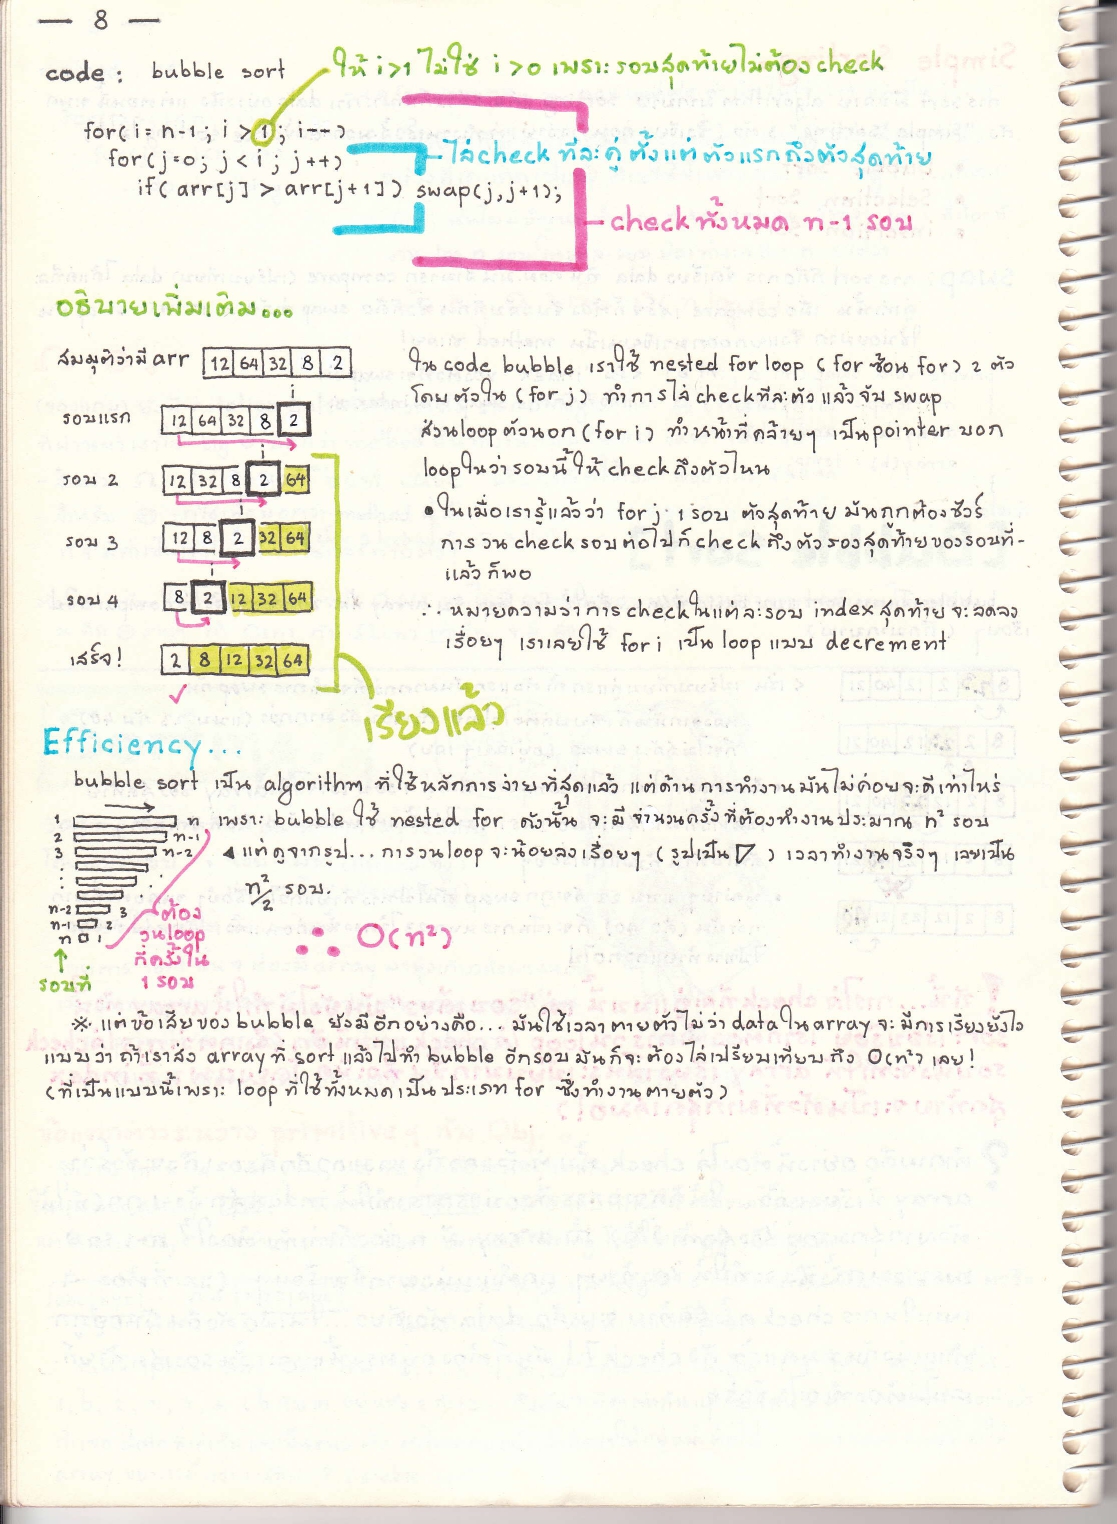 — 8 —
code : bubble sort
ให้ i>1 ไม่ใช่ i>0 เพราะรอบสุดท้ายไม่ต้อง check
for(i=n-1; i>1; i--)
for(j=0; j<i; j++)
ไล่ check ทีละคู่ ตั้งแต่ตัวแรกถึงตัวสุดท้าย
if(arr[j] > arr[j+1]) swap(j,j+1);
check ทั้งหมด n-1 รอบ
อธิบายเพิ่มเติม...
สมมุติว่ามี arr 12 64 32 8 2
i
รอบแรก 12 64 32 8 2
i
รอบ 2 12 32 8 2 64
i
รอบ 3 12 8 2 32 64
i
รอบ 4 8 2 12 32 64
เสร็จ! 2 8 12 32 64
เรียงแล้ว
ใน code bubble เราใช้ nested for loop (for ซ้อน for) 2 ตัว
โดยตัวใน (for j) ทำการไล่ check ทีละตัว แล้วจับ swap
ส่วน loop ตัวนอก (for i) ทำหน้าที่คล้ายๆ เป็น pointer บอก
loop ในว่ารอบนี้ให้ check ถึงตัวไหน
• ในเมื่อเรารู้แล้วว่า for j 1 รอบ ตัวสุดท้าย มันถูกต้องชัวร์
การวน check รอบต่อไปก็ check ถึงตัวรองสุดท้ายของรอบที่-
แล้วก็พอ
∴ หมายความว่าการ check ในแต่ละรอบ index สุดท้าย จะลดลง
เรื่อยๆ เราเลยใช้ for i เป็น loop แบบ decrement
Efficiency...
bubble sort เป็น algorithm ที่ใช้หลักการง่ายที่สุดแล้ว แต่ด้านการทำงานมันไม่ค่อยจะดีเท่าไหร่
เพราะ bubble ใช้ nested for ดังนั้น จะมีจำนวนครั้งที่ต้องทำงานประมาณ n² รอบ
◄ แต่ดูจากรูป... การวน loop จะน้อยลงเรื่อยๆ (รูปเป็น ▽) เวลาทำงานจริงๆ เลยเป็น
n²/2 รอบ.
1 n
2 n-1
3 n-2
:
:
n-2 3
n-1 2
n 1
รอบที่
ต้อง
วน loop
กี่ครั้งใน
1 รอบ
∴ O(n²)
※ แต่ข้อเสียของ bubble ยังมีอีกอย่างคือ... มันใช้เวลาตายตัว ไม่ว่า data ใน array จะมีการเรียงยังไง
แบบว่า ถ้าเราส่ง array ที่ sort แล้วไปทำ bubble อีกรอบ มันก็จะต้องไล่เปรียบเทียบถึง O(n²) เลย!
(ที่เป็นแบบนี้เพราะ loop ที่ใช้ทั้งหมดเป็นประเภท for ซึ่งทำงานตายตัว)